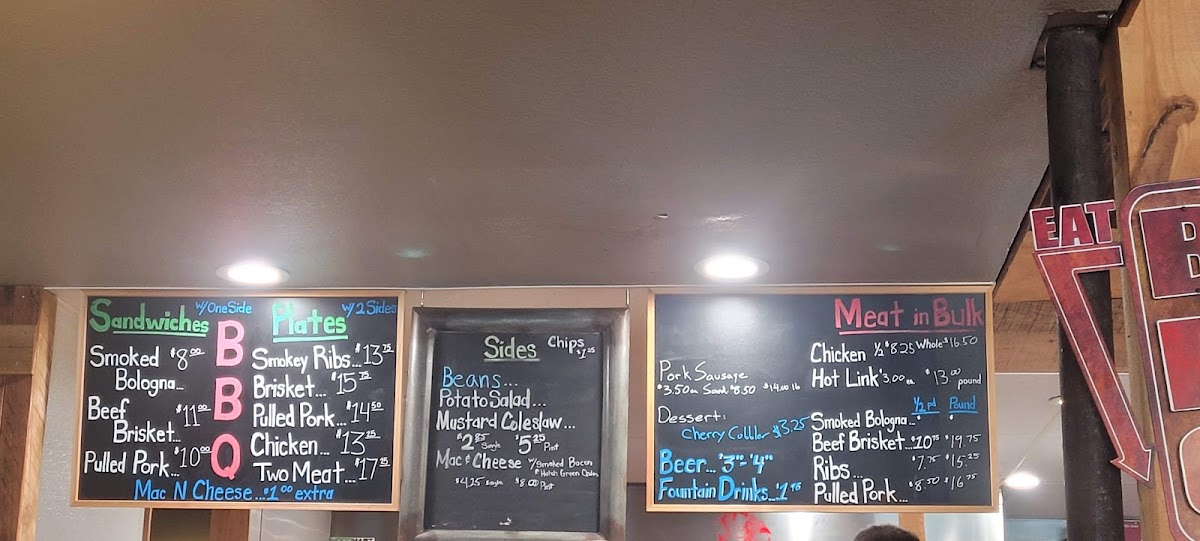 Sandwiches w/One Side
Smoked $8.00
Bologna...
Beef
Brisket... $11.00
Pulled Pork... $10.00
B
B
Q
Plates w/2 Sides
Smokey Ribs... $13.75
Brisket... $15.75
Pulled Pork... $14.50
Chicken... $13.25
Two Meat... $17.25
Mac N Cheese... $1.00 extra
Sides
Chips
$1.25
Beans...
Potato Salad...
Mustard Coleslaw...
$2.85 Single $5.25 Pint
Mac & Cheese w/Smoked Bacon
& Hatch Green Chiles
$4.25 single $8.00 Pint
Pork Sausage
$3.50 ea Sand $8.50 $14.00 lb
Dessert:
Cherry Cobbler $3.25
Beer... $3"-$4"
Fountain Drinks...
Meat in Bulk
Chicken 1/2 $8.25 Whole $16.50
Hot Link $3.00 ea $13.00 pound
1/2 pd Pound
Smoked Bologna...
Beef Brisket... $10.75 $19.75
Ribs... $7.75 $15.25
Pulled Pork... $8.50 $16.75
EAT